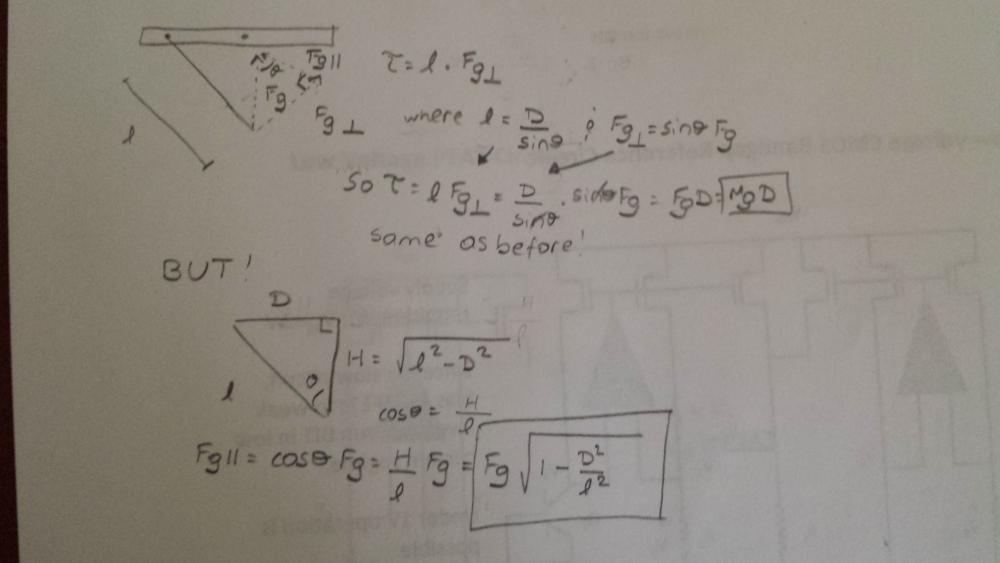 τ = l · Fg⊥
Fg||
θ
Fg
Fg⊥
l
where l = D/sinθ ; Fg⊥ = sinθ Fg
so τ = l Fg⊥ = D/sinθ · sinθ Fg = FgD = MgD
same as before!
BUT!
D
l
θ
H = √(l² - D²)
cosθ = H/l
Fg|| = cosθ Fg = H/l Fg = Fg √(1 - D²/l²)